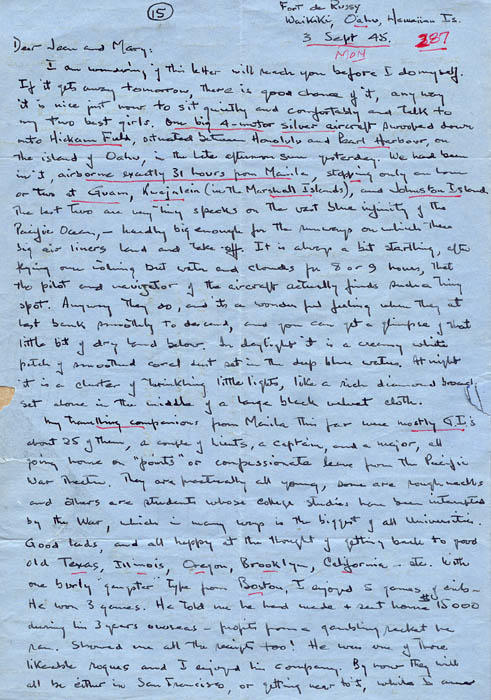 15
Fort de Russy
Waikiki, Oahu, Hawaiian Is.
3 Sept 45.
287
MON
Dear Jean and Mary:
I am wondering if this letter will reach you before I do myself.
If it gets away tomorrow, there is good chance of it, any way
it is nice just now to sit quietly and comfortably and talk to
my two best girls. Our big 4-motor silver aircraft swooped down
into Hickam Field, situated between Honolulu and Pearl Harbour, on
the island of Oahu, in the late afternoon sun yesterday. We had been
in it, airborne exactly 31 hours from Manila, stopping only an hour
or two at Guam, Kwajalein (in the Marshall Islands), and Johnston Island.
The last two are tiny specks on the vast blue infinity of the
Pacific Ocean, - hardly big enough for the runways on which these
big air liners land and take-off. It is always a bit startling, after
flying over nothing but water and clouds for 8 or 9 hours, that
the pilot and navigator of the aircraft actually finds such a tiny
spot. Anyway they do, and its a wonderful feeling when they at
last bank smoothly to descend, and you can get a glimpse of that
little bit of dry land below. In daylight it is a creamy white
patch of smoothed coral dust set in the deep blue water. At night
it is a cluster of twinkling little lights, like a rich diamond broach
set alone in the middle of a large black velvet cloth.
My travelling companions from Manila this far were mostly G.I's
about 25 of them, a couple of Lieuts, a captain, and a major, all
going home on "points" or compassionate leave from the Pacific
War Theatre. They are practically all young, some are roughnecks
and others are students whose college studies have been interrupted
by the War, which in many ways is the biggest of all Universities.
Good lads, and all happy at the thought of getting back to good
old Texas, Illinois, Oregon, Brooklyn, California - etc. With
one burly "gangster" type from Boston, I enjoyed 5 games of crib -
He won 3 games. He told me he had made & sent home $15000
during his 3 years overseas - profits from a gambling racket he
ran. Showed me all the receipts too! He was one of those
likeable rogues and I enjoyed his company. By now they will
all be either in San Francisco, or getting near it, while I